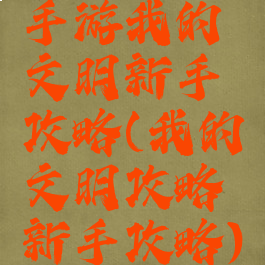 手游我的
文明新手
攻略(我的
文明攻略
新手攻略)